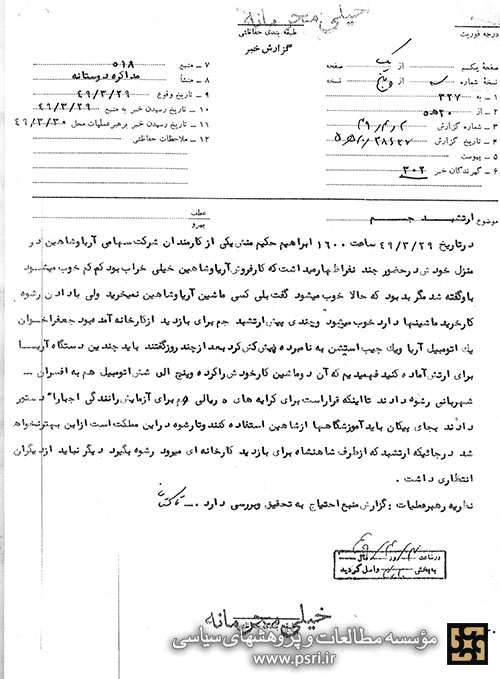 خیلی محرمانه
طبقه بندی حفاظتی
گزارش خبر
درجه فوریت
صفحه یکم از یک صفحه
نسخه شماره سه از پنج نسخه
۱ – به ۳۲۷
۲ – از ۲۰ﻫ۵
۳ – شماره گزارش
۴ – تاریخ گزارش
۵ – پیوست
۶ – گیرندگان خبر ۳۰۲
۷ – منبع ۵۱۸
۸ – منشأ مذاکره دوستانه
۹ – تاریخ وقوع ۴۹/۳/۲۹
۱۰ – تاریخ رسیدن خبر به منبع ۴۹/۳/۲۹
۱۱ – تاریخ رسیدن خبر برهبرعملیات محل ۴۹/۳/۳۰
۱۲ – ملاحظات حفاظتی
موضوع ارتشبد جم
عطف
پیرو
درتاریخ ۴۹/۳/۲۹ ساعت ۱۶۰۰ ابراهیم حکیم منش یکی از کارمندان شرکت سهامی آریا وشاهین در
منزل خودش درحضور چند نفر اظهار میداشت که کارفروش آریا وشاهین خیلی خراب بود کم کم خوب میشود
باو گفته شد مگر بد بود که حالا خوب میشود گفت بلی کسی ماشین آریا وشاهین نمیخرید ولی بادادن رشوه
کارخرید ماشینها دارد خوب میشود وچندی پیش ارتشبد جم برای بازدید از کارخانه آمد بود جعفر اخوان
یک اتومبیل آریا ویک جیپ استیشن به نامبرده پیش کش کرد بعد از چند روز گفتند باید چندین دستگاه آریا
برای ارتش آماده کنید فهمیدیم که آن دو ماشین کار خودش را کرده وپنج الی شش اتومبیل هم به افسران –
شهربانی رشوه دادند تا اینکه قرار است برای کرایه های ۵ ریالی وهم برای آزمایش رانندگی اجبارا" دستور
دادند بجای پیکان باید آموزشگاهها از شاهین استفاده کنند وتا رشوه در این مملکت است از این بهتر نخواهد
شد درجائیکه ارتشبد که ازطرف شاهنشاه برای بازدید کارخانه ای میرود رشوه بگیرد دیگر نباید از دیگران
انتظاری داشت .
نظریه رهبرعملیات : گزارش منبع احتیاج به تحقیق وبررسی دارد .
درساعت روز
به بخش واصل گردید
خیلی محرمانه
مؤسسه مطالعات و پژوهشهای سیاسی
www.psri.ir